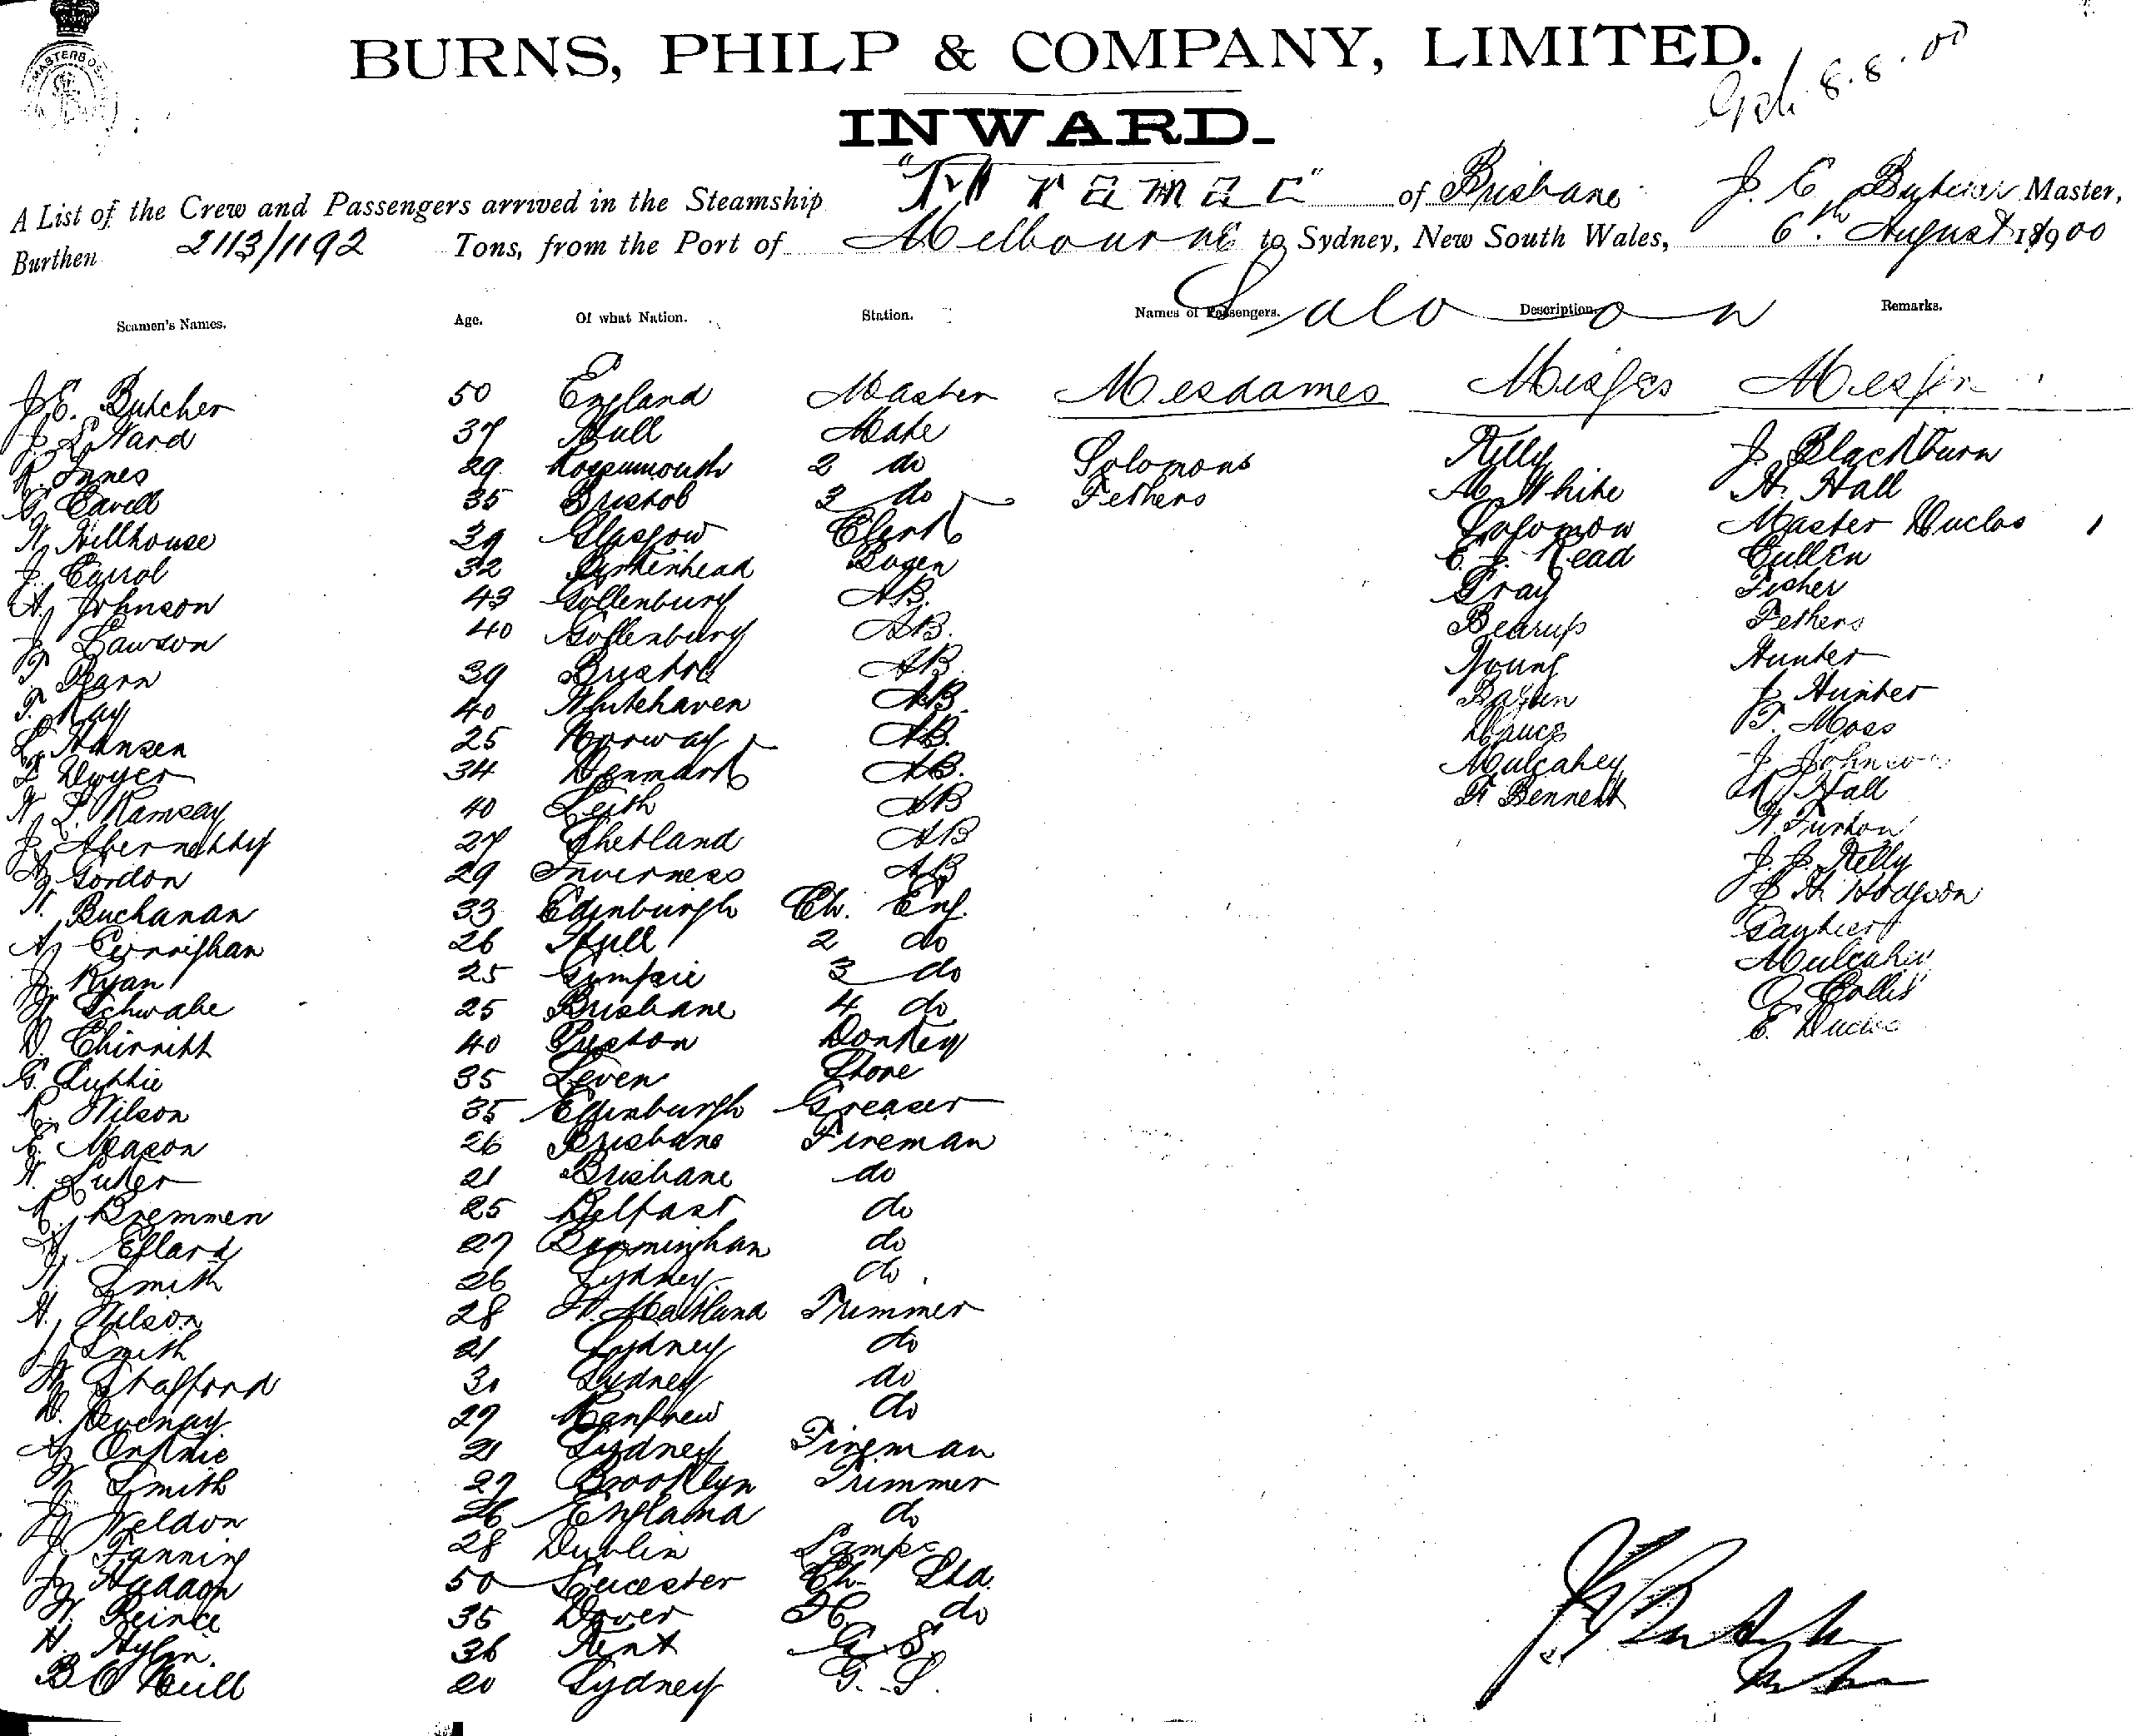 BURNS, PHILP & COMPANY, LIMITED.
8.8.00
INWARD.
A List of the Crew and Passengers arrived in the Steamship "Aramac" of Brisbane J. E. Butcher Master,
Burthen 2113/1192 Tons, from the Port of Melbourne to Sydney, New South Wales, 6th August 1900
Saloon
Seamen's Names. Age. Of what Nation. Station. Names of Passengers. Description. Remarks.
Mesdames Misses Messrs
J. E. Butcher 50 England Master
J. L. Ward 37 Hull Mate Solomons Kelly J. Blackburn
R. Innes 29 2 do Fethers M. White H. Hall
G. Cavell 35 Bristol 3 do Solomon Master Duclos
W. Hillhouse 39 Glasgow Clerk E. J. Read Cullen
J. Carrol 32 Birkenhead Bosen Gray Fisher
A. Johnson 43 Gottenburg AB. Bearup Fethers
J. Lawson 40 Gottenburg AB. Young Hunter
T. Pearn 39 Bristol AB. J. Hunter
T. Kay 40 Whitehaven AB. T. Moss
L. Hansen 25 Norway AB. Mulcahey J. Johnson
L. Dwyer 34 Denmark AB. F. Bennett R. Hall
W. L. Ramsay 40 Leith AB
J. Abernethy 27 Shetland AB J. J. Kelly
A. Gordon 29 Inverness AB J. H. Hodgson
W. Buchanan 33 Edinburgh Ch. Eng. Gautier
A. Cernighan 26 Hull 2 do Mulcahey
J. Ryan 25 Gympie 3 do O. Collis
W. Schwabe 25 Brisbane 4 do E. Duclos
D. Chirnitt 40 Preston Donkey
G. Luthie 35 Leven Store
R. Wilson 35 Edinburgh Greaser
E. Meason 26 Brisbane Fireman
W. Luker 21 Brisbane do
R. Bremmen 25 Belfast do
Ellard 27 Birminghan do
W. Smith 26 Sydney do
H. Wilson 28 W. Maitland Trimmer
J. Smith 21 Sydney do
W. Stafford 30 Sydney do
D. Devenay 27 Renfrew do
21 Sydney Fireman
W. Smith 27 Brooklyn Trimmer
J. Weldon 26 England do
J. Fanning 28 Dublin Lamps
J. Haddon 50 Leicester Ch. Std.
W. Prince 35 Dover do
H. 36 Kent G. S.
B O'Neill 20 Sydney G. S.